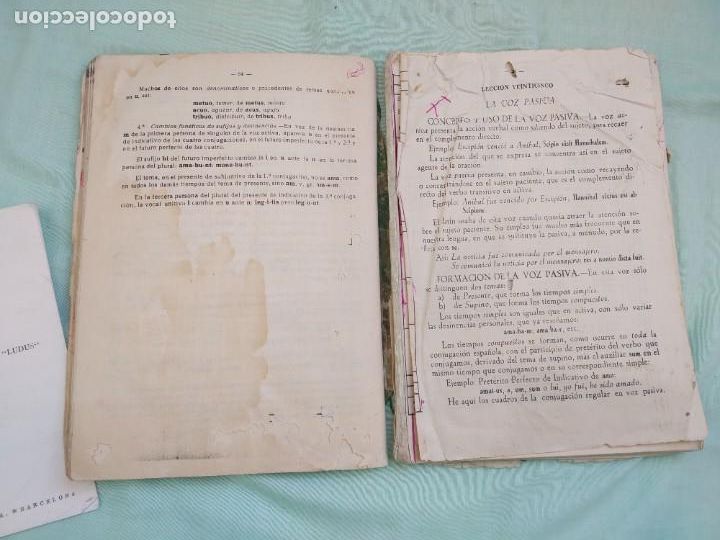 todocoleccion
— 94 —
Muchos de ellos son denominativos o procedentes de temas
en u, así:
metuo, temer, de metus, miedo
acuo, aguzar, de acus, agudo
tribuo, distribuir, de tribus, tribu
4.º Cambios fonéticos de sufijos y desinencias.—En vez de la desinencia
m de la primera persona de singular de la voz activa, aparece o en el presente
de indicativo de las cuatro conjugaciones, en el futuro imperfecto de la 1.ª y 2.ª y
en el futuro perfecto de las cuatro.
El sufijo bi del futuro imperfecto cambia la i en u ante la n de la tercera
persona del plural: ama-bu-nt, mone-bu-nt.
El tema, en el presente de subjuntivo de la 1.ª conjugación, no es ama, como
en todos los demás tiempos del tema de presente, sino am, v. gr. am-e-m.
En la tercera persona del plural del presente de indicativo de la 3.ª conjuga-
ción, la vocal unitiva i cambia en u ante n: leg-i-tis pero leg-u-nt.
LECCIÓN VEINTICINCO
LA VOZ PASIVA
CONCEPTO Y USO DE LA VOZ PASIVA.—La voz ac-
tiva presenta la acción verbal como saliendo del sujeto, para recaer
en el complemento directo.
Ejemplo: Escipión venció a Aníbal, Scipio vicit Hannibalem.
La atención del que se expresa se concentra así en el sujeto
agente de la oración.
La voz pasiva presenta, en cambio, la acción como recayendo
o concentrándose en el sujeto paciente, que es el complemento di-
rectivo del verbo transitivo en activa.
Ejemplo: Aníbal fue vencido por Escipión, Hannibal victus est ab
Scipione.
El latín usaba de esta voz cuando quería atraer la atención so-
bre el sujeto paciente. Su empleo fue mucho más frecuente que en
nuestra lengua, en que se substituye la pasiva, a menudo, por la re-
fleja con se.
Así: La noticia fue comunicada por el mensajero.
Se comunicó la noticia por el mensajero: res a nuntio dicta fuit.
FORMACION DE LA VOZ PASIVA.—En esta voz sólo
se distinguen dos temas:
a) de Presente, que forma los tiempos simples.
b) de Supino, que forma los tiempos compuestos.
Los tiempos simples son iguales que en activa, con sólo variar
las desinencias personales, que ya reseñamos:
ama-ba-m: ama-ba-r, etc.
Los tiempos compuestos se forman, como ocurre en toda la
conjugación española, con el participio de pretérito del verbo que
conjugamos, derivado del tema de supino, mas el auxiliar sum en el
mismo tiempo que conjugamos o en su correspondiente simple:
Ejemplo: Pretérito Perfecto de Indicativo de amo:
amat-us, a, um, sum o fui, yo fui, he sido amado.
He aquí los cuadros de la conjugación regular en voz pasiva.
"LUDUS"
BARCELONA
todocoleccion.net